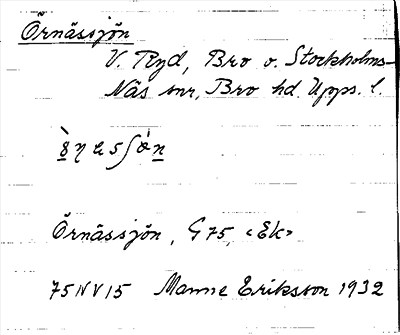 Örnässjön
V. Ryd, Bro o. Stockholms-
Näs snr, Bro hd. Upps. l.
Örnässjön, G75, <Ek>
75NV15 Manne Eriksson 1932